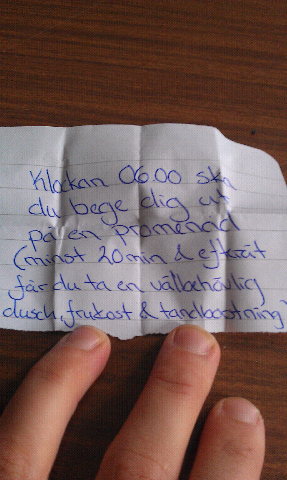 Klockan 06.00 ska
du bege dig ut
på en promenad
(minst 20 min & efteråt
får du ta en välbehövlig
dusch, frukost & tandborstning